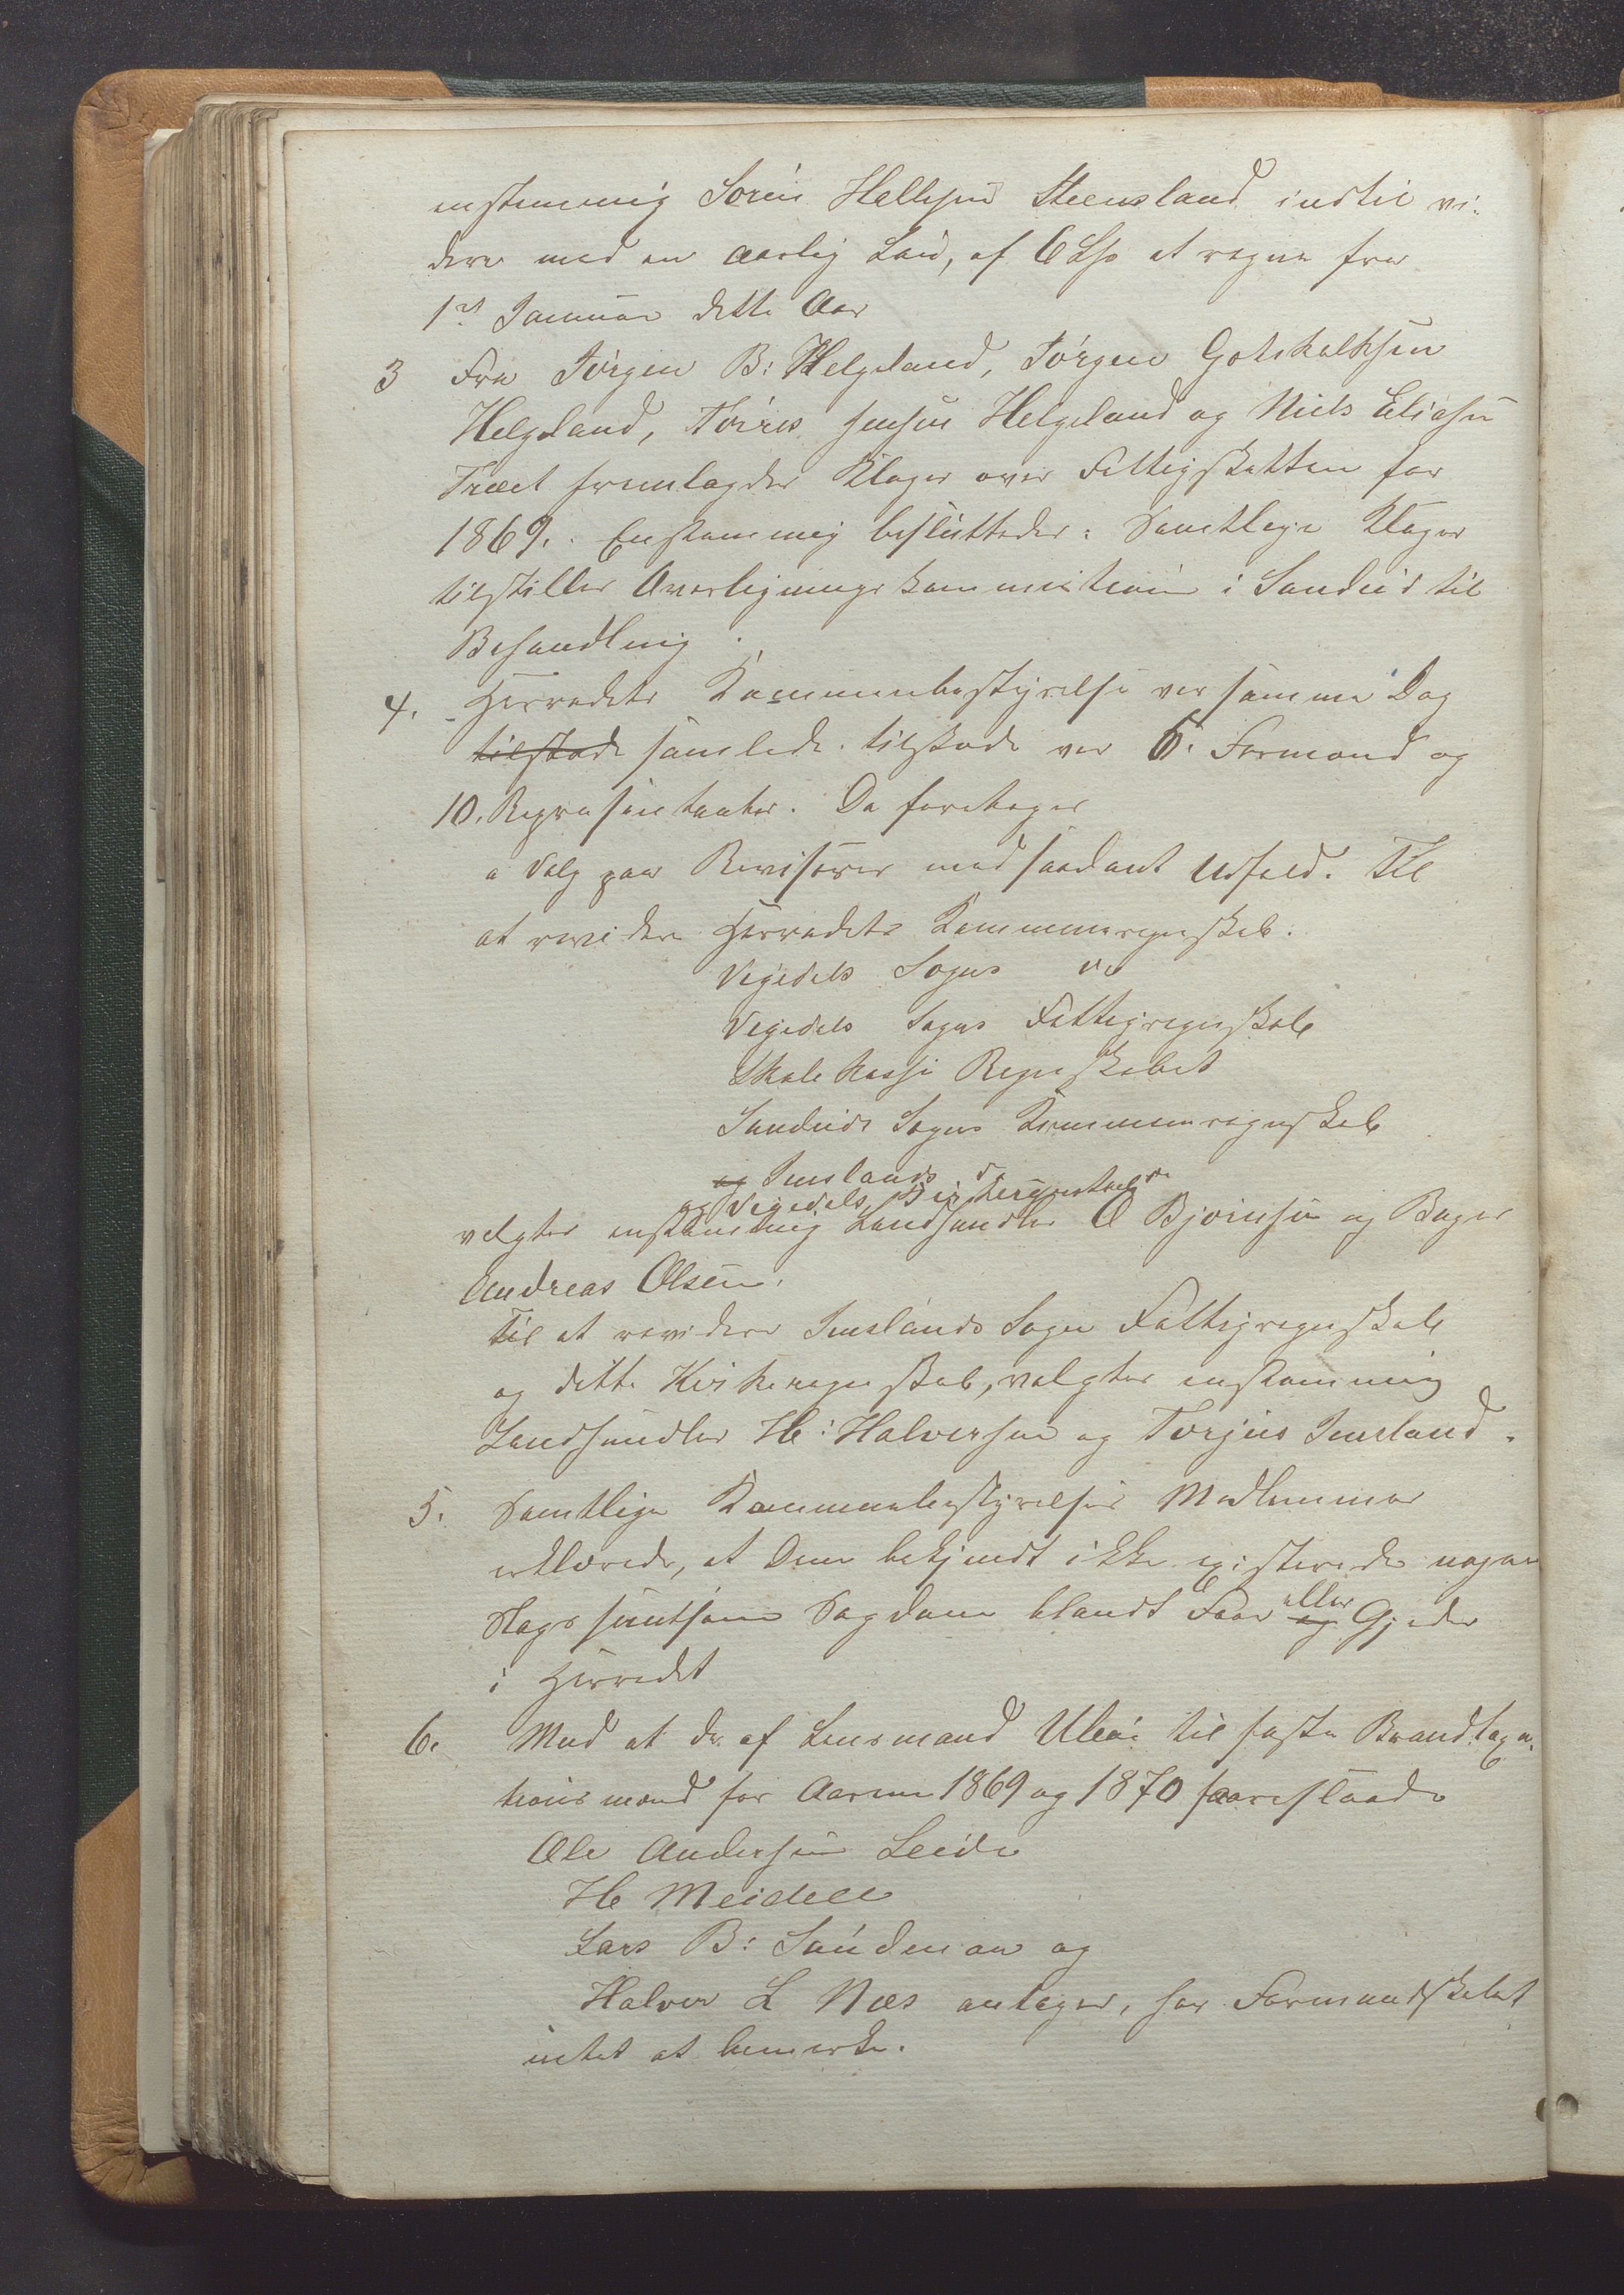 enstemmig Sören Hellesen Steensland indtil vi-
dere med en aarlig Løn, af 6 Sp at regne fra
1st Januar dette Aar
3 Fra Jörgen B: Helgeland, Jörgen Gotskalksen
Helgeland, Törres Jensen Helgeland og Niels Eliasen
Træet fremlagdes Klager over Fattigskatten for
1869. Enstemmig besluttedes: Samtlige Klager
tilstilles Overligningskommissionen i Sandeid til
Behandling.
4. Herredets Kommunebestyrelse var samme Dag
tilstede samlede. tilstede var 6. Formænd og
10. Repræsentanter. Da foretoges
a Valg paa Revisorer med saadant Udfald. Til
at revidere Herredets Kommuneregnskab.
Vigedals Sogns do
Vigedals Sogns Fattigregnskab
Skolekasse Regnskabet
Sandeids Sogns Kommuneregnskab
og Imslands do
og Vigedals Kirkeregnskab
valgtes enstemmig Landhandler O Bjørnsen og Bager
Andreas Olsen.
Til at revidere Imslands Sogns Fattigregnskab
og dette Kirkeregnskab, valgtes enstemmig
Landhandler H: Halversen og Torjus Imsland.
5. Samtlige Kommunebestyrelsens Medlemmer
erklærede, at Dem bekjendt ikke existerede nogen
Slags smitsom Sygdom blandt Faar eller og Gjeder
i Herredet
6. Mod at de af Lensmand Uleø til faste Brandtaxa-
tionsmænd for Aarene 1869 og 1870 foreslaaede
Ole Andersen Leide
H Meidell
Lars B: Søndenaa og
Halvor L Næs antages, har Formandskabet
intet at bemærke.